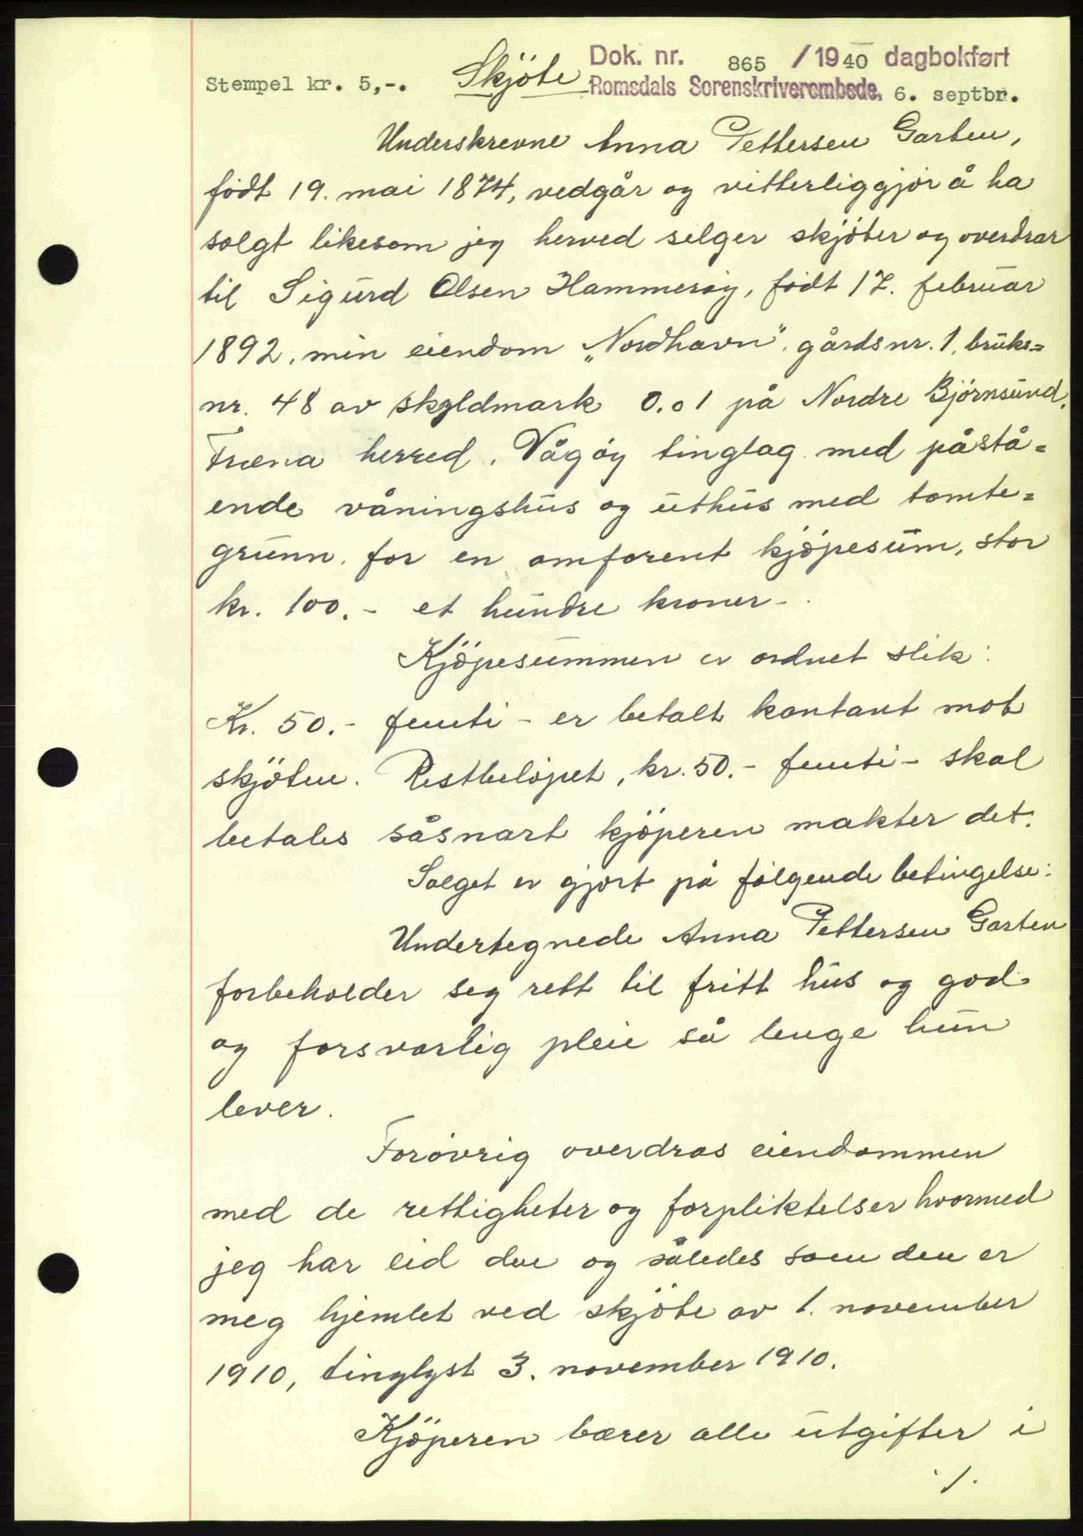 Dok. nr. 865 / 1940 dagbokført
Stempel kr. 5,-. Skjöte Romsdals Sorenskriverembede. 6. septbr.
Underskrevne Anna Pettersen Garten,
født 19. mai 1874, vedgår og vitterliggjör å ha
solgt likesom jeg herved selger skjöter og overdrar
til Sigurd Olsen Hammeröy, född 17. februar
1892, min eiendom „Nordhavn". gårdsnr. 1, bruks=
nr. 48 av skyldmark 0.01 på Nordre Björnsund,
Fræna herred, Vågöy tinglag med påstå=
ende våningshus og uthus med tomte=
grunn. for en omforent kjöpesum, stor
kr. 100.- et hundre kroner-.
Kjöpesummen er ordnet slik:
Kr. 50.- femti - er betalt kontant mot
skjöten. Restbelöpet, kr. 50.- femti - skal
betales såsnart kjöperen makter det.
Salget er gjort på fölgende betingelse:
Undertegnede Anna Pettersen Garten
forbeholder seg rett til fritt hus og god
og forsvarlig pleie så lenge hun
lever.
Forövrig overdras eiendommen
med de rettigheter og forpliktelser hvormed
jeg har eid den og således som den er
meg hjemlet ved skjöte av 1. november
1910, tinglyst 3. november 1910.
Kjöperen bærer alle utgifter i
./.